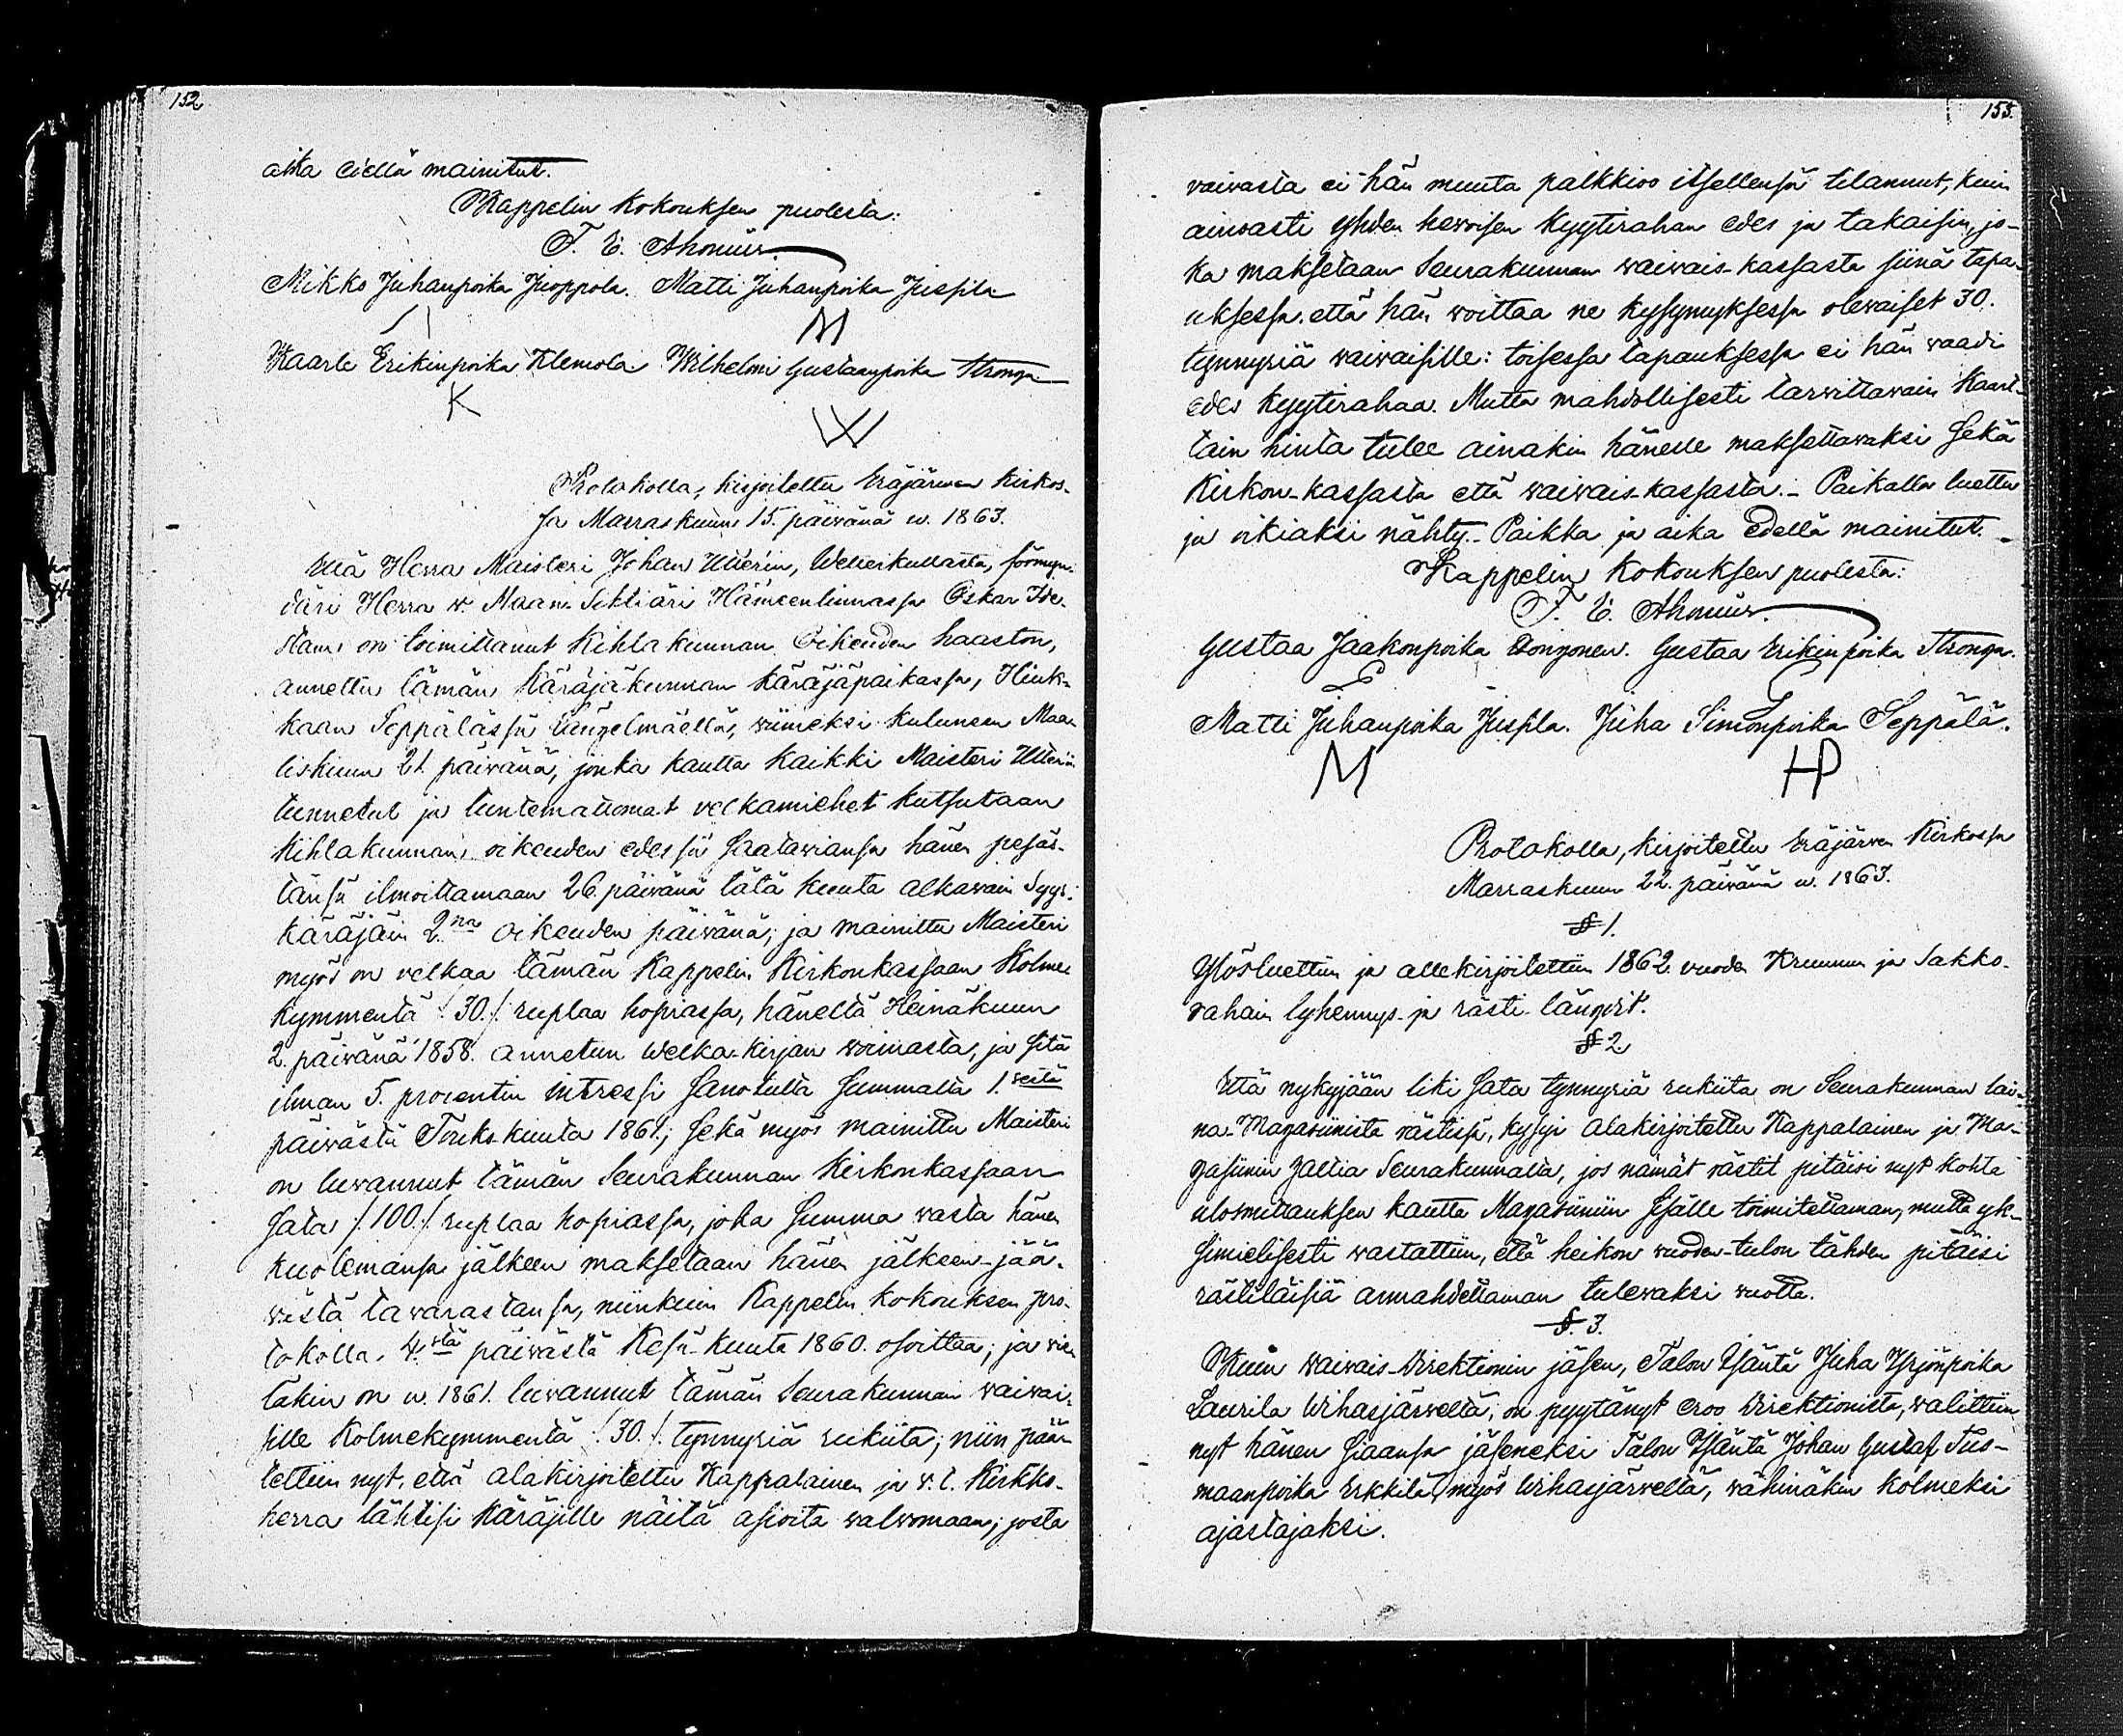 152
aika edellä mainitut.
Kappelin kokouksen puolesta:
F. E. Ahonius.
Mikko Juhanpoika Juoppola. Matti Juhanpoika Jussila
M
Kaarle Erikinpoika Klemola Wilhelmi Gustaanpoika Stronga
K
W
Protokolla, kirjoitettu Eräjärwen kirkos-
sa Marraskuun 15. päiwänä w. 1863.
Että Herra Maisteri Johan Utterin, Wetterkullasta, förmyn-
däri Herra w. Maan-Sihtiäri Hämeenlinnassa Oskar
on toimittanut Kihlakunnan Oikeuden haaston,
annettu tämän Käräjäkunnan käräjäpaikassa, Hiuk-
kaan Seppälässä Längelmäellä, wiimeksi kuluneen Maa-
liskuun 21. päiwänä, jonka kautta kaikki Maisteri Utterin
tunnetut ja tuntemattomat velkamiehet kutsutaan
Kihlakunnan oikeuden edessä saatawiansa hänen pesäs-
tänsä ilmoittamaan 26. päiwänä tätä kuuta alkawain Syys-
käräjäin 2na oikeuden päiwänä; ja mainittu Maisteri
myös on velkaa tämän Kappelin Kirkonkassaan Kolme
kymmentä /:30:/ ruplaa hopiassa, häneltä Heinäkuun
2. päiwänä 1858. annetun Welka-kirjan woimasta, ja sitä
ilman 5. procentin intressi sanotulta summalta 1.seltä
päiwästä Touko-kuuta 1861; sekä myös mainittu Maisteri
on luwannut tämän Seurakunnan Kirkonkassaan
Sata /:100:/ ruplaa hopiassa, joka summa wasta hänen
kuolemansa jälkeen maksetaan hänen jälkeen-jää-
wästä tawarastansa, niinkuin Kappelin kokouksen pro-
tokolla, 4.stä päiwästä Kesä-kuuta 1860. osoittaa; ja wie-
läkin on w. 1861. luwannut tämän Seurakunnan waiwai-
sille Kolmekymmentä /:30:/ tynnyriä rukiita; niin pää-
tettiin nyt, että alakirjoitettu Kappalainen ja v. t. Kirkko-
herra lähtisi käräjille näitä asioita walwomaan; josta
153.
vaivasta ei hän muuta palkkioo itsellensä tilannut, kuin
ainoasti yhden hewoisen kyytirahan edes ja takaisin, jo-
ka maksetaan Seurakunnan waiwais-kassasta siinä tapa-
uksessa, että hän woittaa ne kysymyksessä olewaiset 30.
tynnyriä waiwaisille: toisessa tapauksessa ei hän vaadi
edes kyytirahaa. Mutta mahdollisesti tarwittawain Kaart-
tain hinta tulee ainakin hänelle maksettawaksi sekä
Kirkon-kassasta että waiwais-kassasta. Paikalla luettu
ja oikiaksi nähty. Paikka ja aika edellä mainitut.
Kappelin kokouksen puolesta:
F. E. Ahonius.
Gustaa Jaakonpoika Rongonen. Gustaa Erikinpoika Stronga.
Matti Juhanpoika Jussila. Juha Simonpoika Seppälä.
M
HP
Protokolla, kirjoitettu Eräjärwen Kirkossa
Marraskuun 22. päiwänä w. 1863.
§ 1.
Ylösluettiin ja allekirjoitettiin 1862 vuoden Kruunun ja Sakko-
rahain lyhennys- ja rästi-längdit.
§ 2.
Että nykyjään liki sata tynnyriä rukiita on Seurakunnan lai-
na-Magasiinista rästissä, kysyi alakirjoitettu Kappalainen ja Ma-
gasiinin Seurakunnalta, jos nämät rästit pitäisi nyt kohta
ulosmittauksen kautta Magasiiniin sisälle toimitettaman, mutta yk-
simielisesti wastattiin, että heikon wuoden-tulon tähden pitäisi
rästiläisiä annahdettaman tulewaksi wuotta.
§. 3.
Kuin waiwais-Direktionin jäsen, Talon Isäntä Juha Yrjönpoika
Laurila Wihasjärweltä, on pyytänyt eroo Direktionista, walittiin
nyt hänen siaansa jäseneksi Talon Isäntä Johan Gustaf Tuo-
maanpoika Erkkilä, myös Wihasjärweltä, wähinäkin kolmeksi
ajastajaksi.